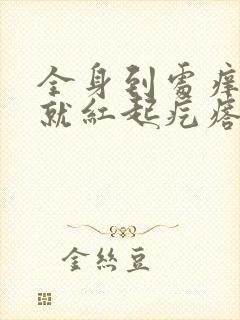 全身到處痒
就紅起疙瘩
金絲豆